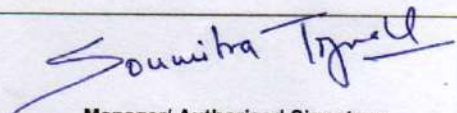 Soumitra
Manager/ Authorised Signatory